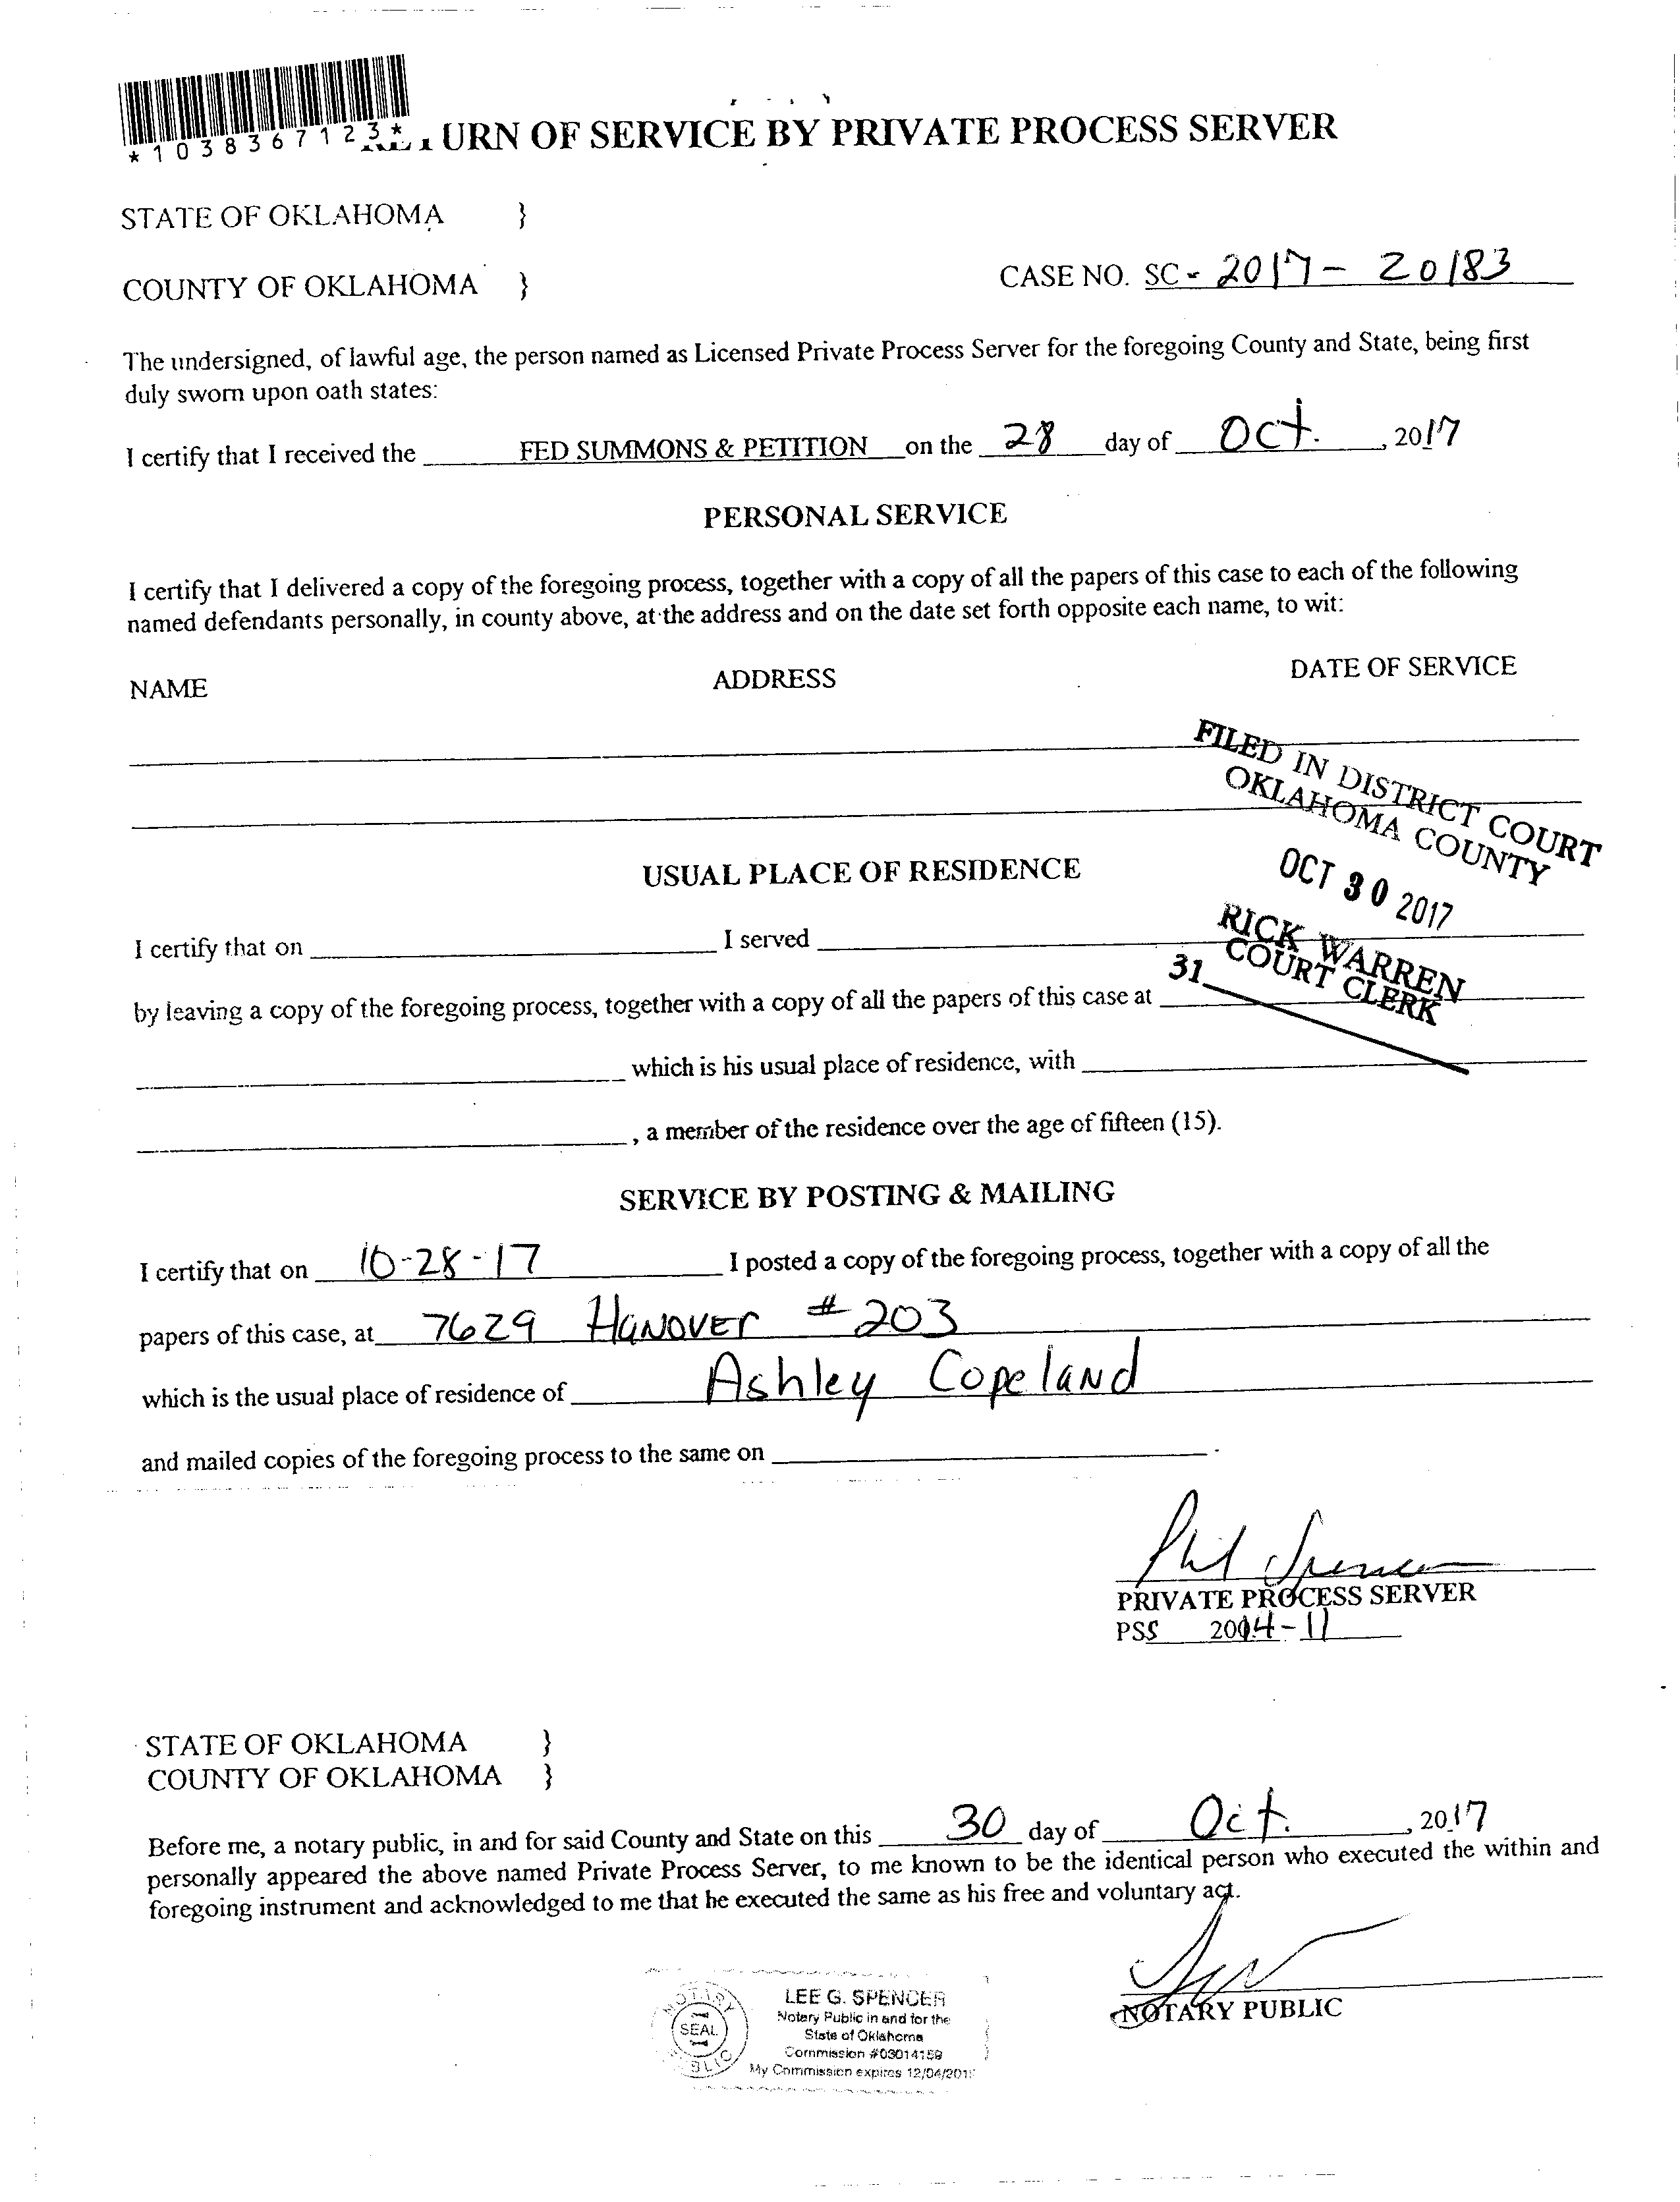 *1038367123*
URN OF SERVICE BY PRIVATE PROCESS SERVER
STATE OF OKLAHOMA }
COUNTY OF OKLAHOMA }
CASE NO. SC - 2017 - 20183
The undersigned, of lawful age, the person named as Licensed Private Process Server for the foregoing County and State, being first
duly sworn upon oath states:
I certify that I received the FED SUMMONS & PETITION on the 28 day of Oct. , 2017
PERSONAL SERVICE
I certify that I delivered a copy of the foregoing process, together with a copy of all the papers of this case to each of the following
named defendants personally, in county above, at the address and on the date set forth opposite each name, to wit:
NAME ADDRESS DATE OF SERVICE
FILED IN DISTRICT COURT
OKLAHOMA COUNTY
OCT 30 2017
RICK WARREN
COURT CLERK
31
USUAL PLACE OF RESIDENCE
I certify that on I served
by leaving a copy of the foregoing process, together with a copy of all the papers of this case at
which is his usual place of residence, with
, a member of the residence over the age of fifteen (15).
SERVICE BY POSTING & MAILING
I certify that on 10-28-17 I posted a copy of the foregoing process, together with a copy of all the
papers of this case, at 7629 HANOVER # 203
which is the usual place of residence of Ashley Copeland
and mailed copies of the foregoing process to the same on .
Phil Spencer
PRIVATE PROCESS SERVER
PSS 2014-11
STATE OF OKLAHOMA }
COUNTY OF OKLAHOMA }
Before me, a notary public, in and for said County and State on this 30 day of Oct. , 2017
personally appeared the above named Private Process Server, to me known to be the identical person who executed the within and
foregoing instrument and acknowledged to me that he executed the same as his free and voluntary act.
NOTARY PUBLIC
NOTARY
SEAL
PUBLIC
LEE G. SPENCER
Notary Public in and for the
State of Oklahoma
Commission #03014159
My Commission expires 12/04/201